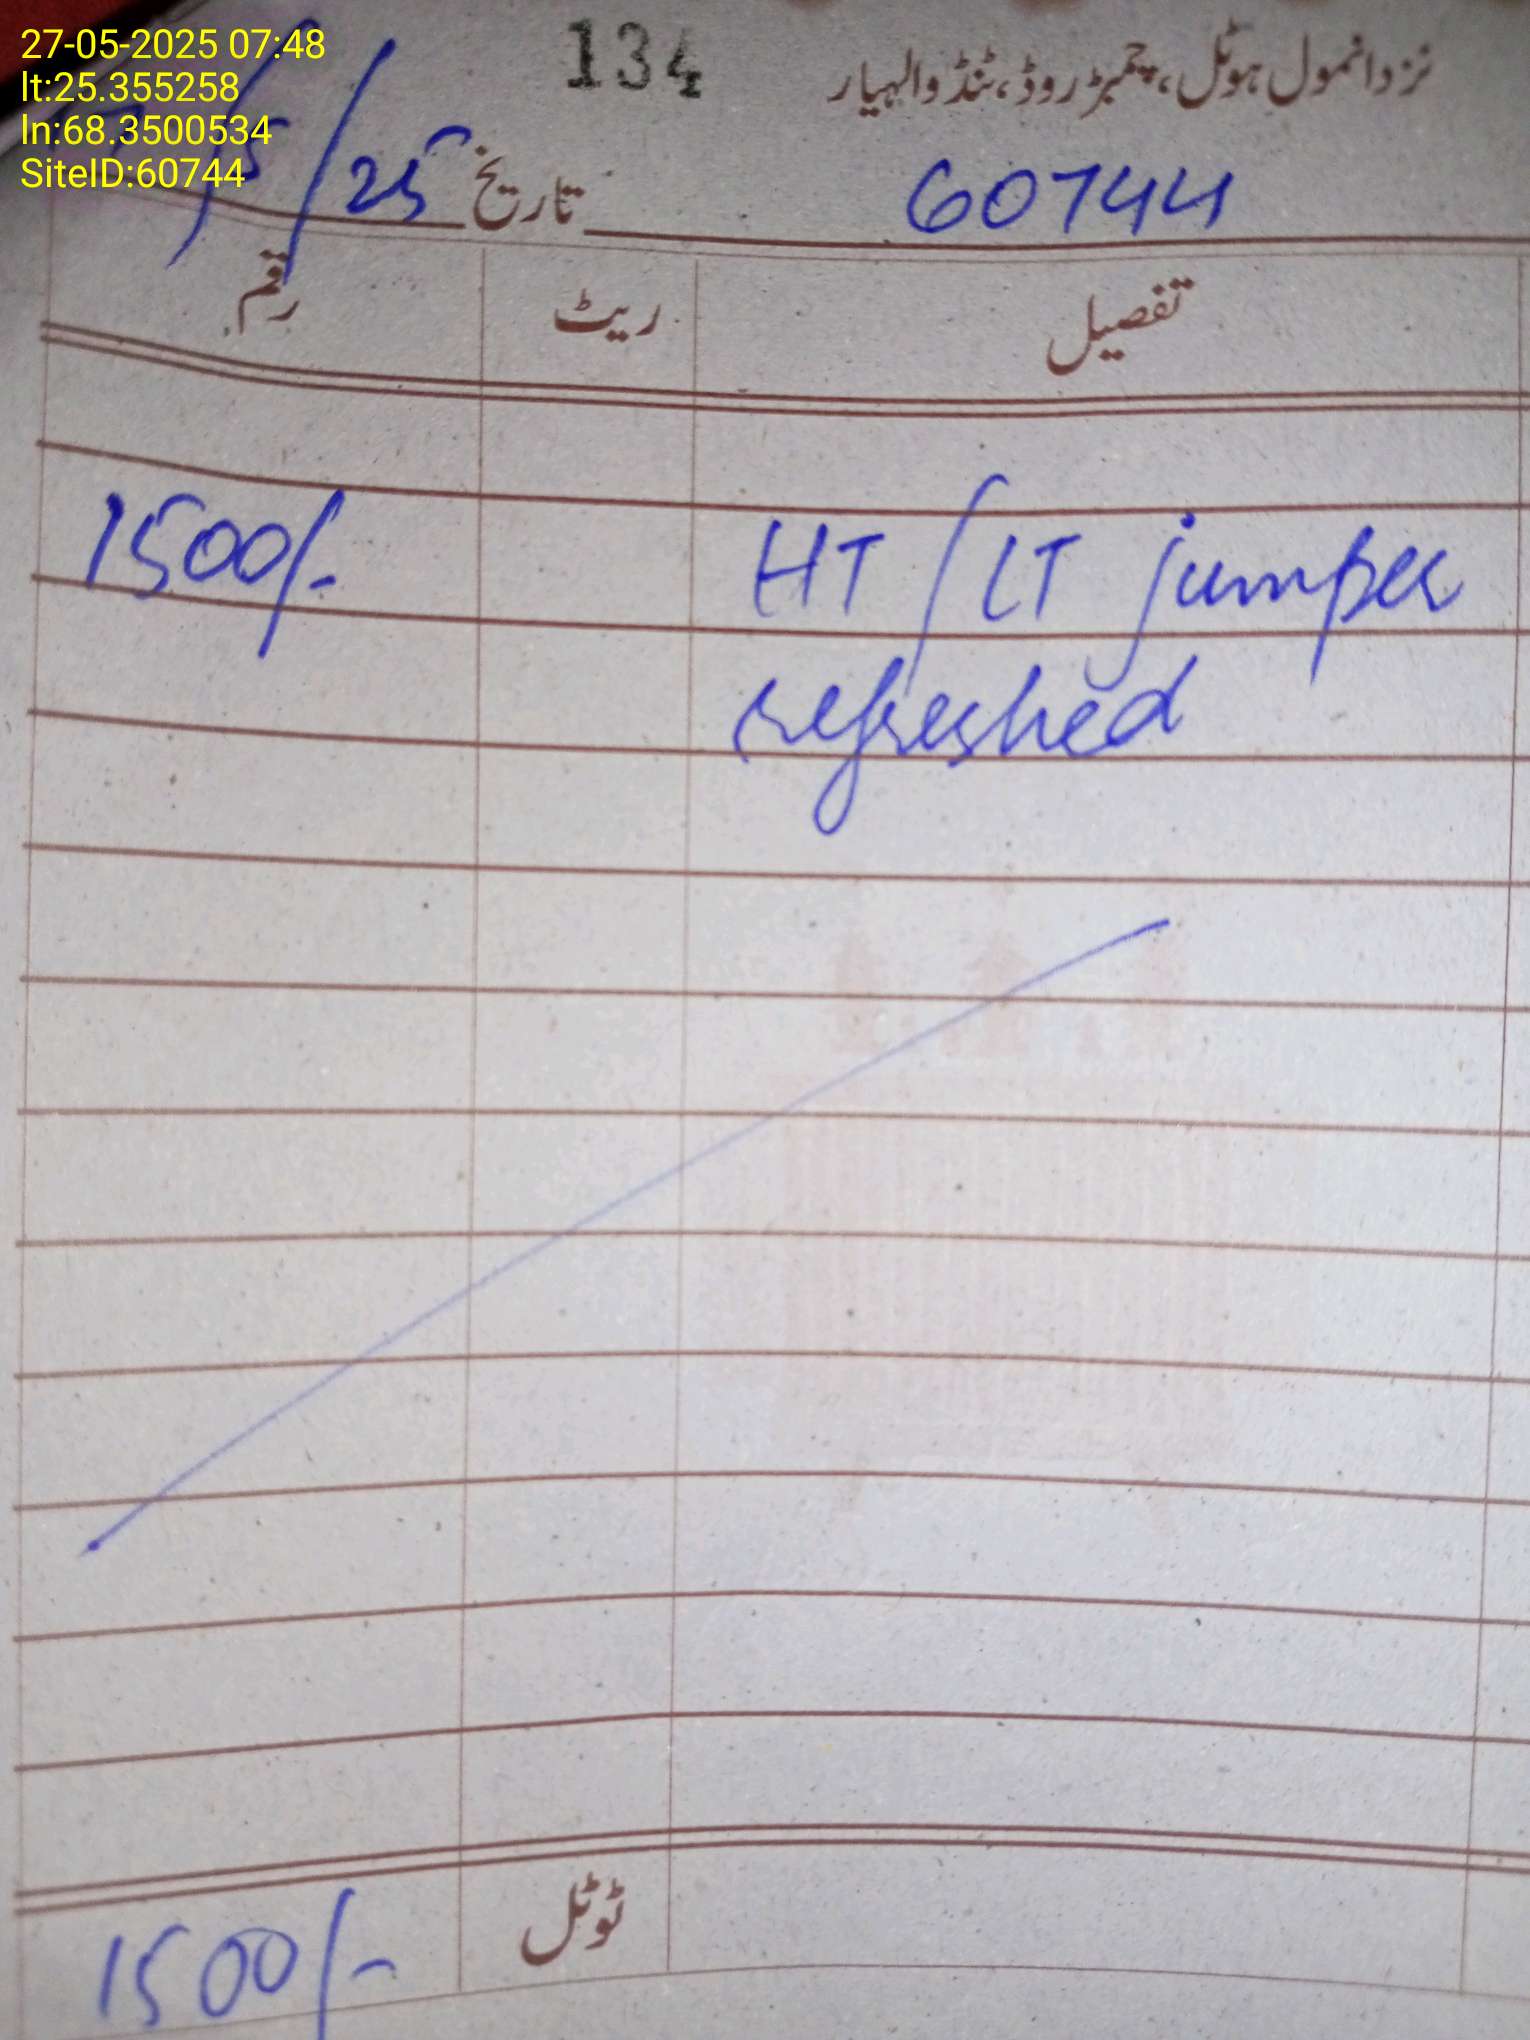 27-05-2025 07:48
lt:25.355258
ln:68.3500534
SiteID:60744
134
نزد انمول ہوٹل، چمبڑ روڈ، ٹنڈوالہیار
60744 تاریخ /5/25
تفصیل ریٹ رقم
HT/LT jumper 1500/-
refreshed
ٹوٹل 1500/-